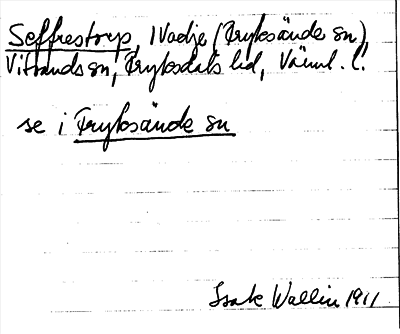 Seffrestorp, 1 Vadje (Fryksände sn)
Vitsands sn, Fryksdals hd, Värml. l.
se i Fryksände sn
Isak Wallin 1911